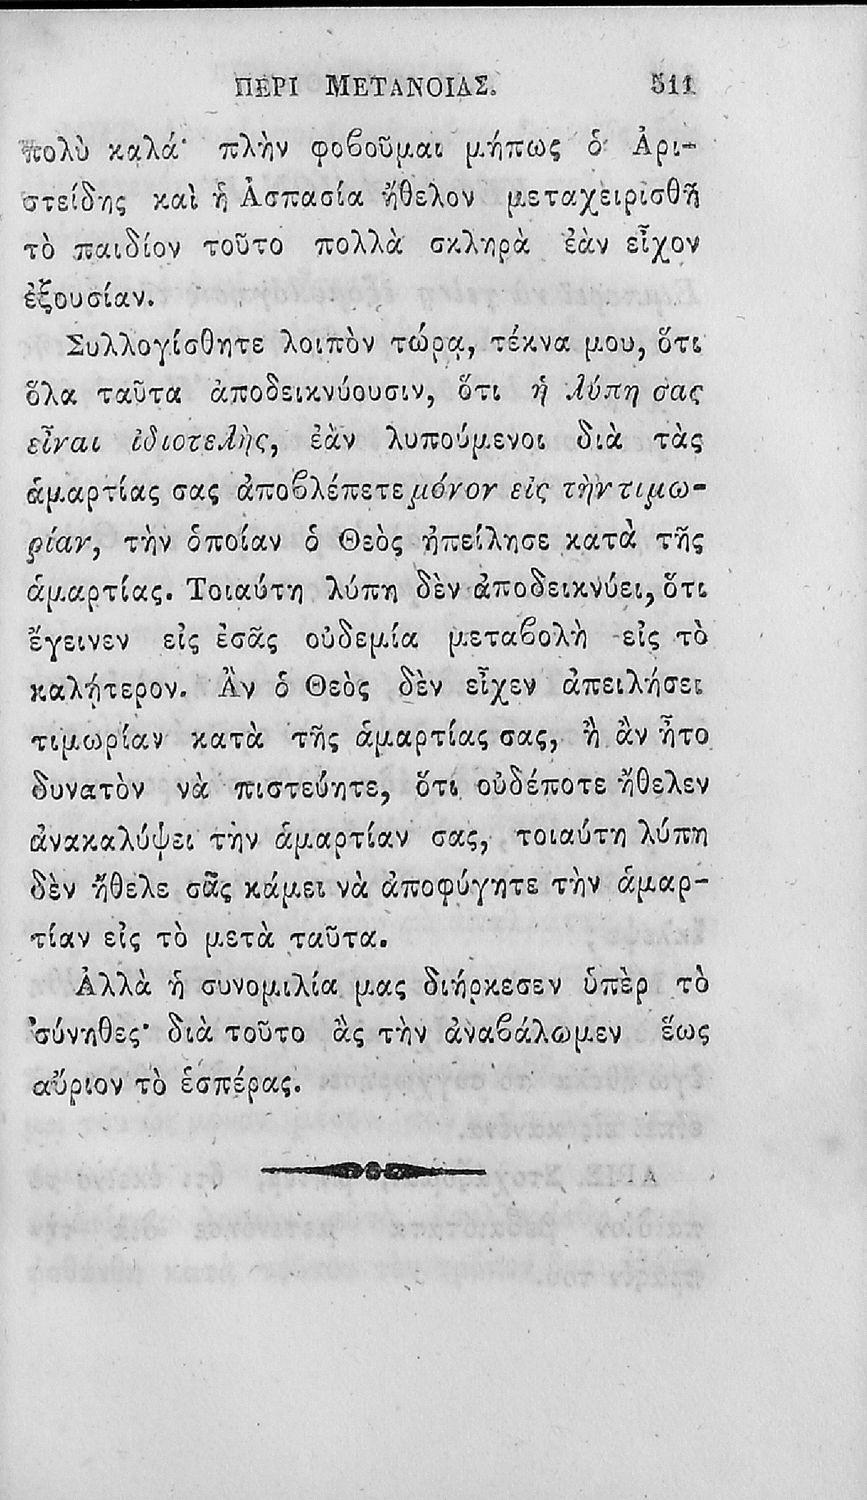 ΠΕΡΙ ΜΕΤΑΝΟΙΑΣ. 511
πολὺ καλά· πλὴν φοβοῦμαι μήπως ὁ Ἀρι-
στείδης καὶ ἡ Ἀσπασία ἤθελον μεταχειρισθῆ
τὸ παιδίον τοῦτο πολλὰ σκληρὰ ἐὰν εἶχον
ἐξουσίαν.
Συλλογίσθητε λοιπὸν τώρα, τέκνα μου, ὅτι
ὅλα ταῦτα ἀποδεικνύουσιν, ὅτι ἡ λύπη σας
εἶναι ἰδιοτελὴς, ἐὰν λυπούμενοι διὰ τὰς
ἁμαρτίας σας ἀποβλέπετε μόνον εἰς τὴν τιμω-
ρίαν, τὴν ὁποίαν ὁ Θεὸς ἠπείλησε κατὰ τῆς
ἁμαρτίας. Τοιαύτη λύπη δὲν ἀποδεικνύει, ὅτι
ἔγεινεν εἰς ἐσᾶς οὐδεμία μεταβολὴ εἰς τὸ
καλήτερον. Ἂν ὁ Θεὸς δὲν εἶχεν ἀπειλήσει
τιμωρίαν κατὰ τῆς ἁμαρτίας σας, ἢ ἂν ἦτο
δυνατὸν νὰ πιστεύητε, ὅτι οὐδέποτε ἤθελεν
ἀνακαλύψει τὴν ἁμαρτίαν σας, τοιαύτη λύπη
δὲν ἤθελε σᾶς κάμει νὰ ἀποφύγητε τὴν ἁμαρ-
τίαν εἰς τὸ μετὰ ταῦτα.
Ἀλλὰ ἡ συνομιλία μας διήρκεσεν ὑπὲρ τὸ
σύνηθες· διὰ τοῦτο ἂς τὴν ἀναβάλωμεν ἕως
αὔριον τὸ ἑσπέρας.